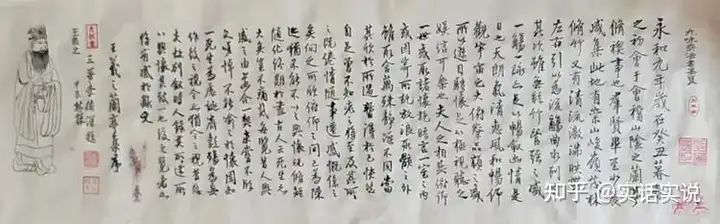 永和九年歲在癸丑暮春
之初會于會稽山陰之蘭亭
脩禊事也羣賢畢至少長
咸集此地有崇山峻領茂林
脩竹又有清流激湍映帶
左右引以為流觴曲水列坐
其次雖無絲竹管弦之盛
一觴一詠亦足以暢叙幽情是
日也天朗氣清惠風和暢仰
觀宇宙之大俯察品類之盛
所以遊目騁懷足以極視聽之
娛信可樂也夫人之相與俯仰
一世或取諸懷抱晤言一室之內
或因寄所託放浪形骸之外
雖取舍萬殊静躁不同當
其欣於所遇暫得於己快然
自足不知老之將至及其所
之既倦情隨事遷感慨係之
矣向之所欣俯仰之間已為陳
迹猶不能不以之興懷況脩短
隨化終期於盡古人云死生亦
大矣豈不痛哉每覽昔人興
感之由若合一契未嘗不
文嗟悼不能喻之於懷固知
一死生為虛誕齊彭殤為妄
作後之視今亦猶今之視昔悲
夫故列叙時人錄其所述
以興懷其致一也後之覽者亦
將有感於斯文
王羲之蘭亭集序
王羲之
知乎 @实话实说